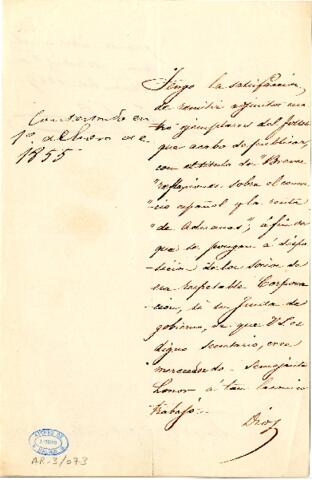 Contestado en
1º de Enero de
1855
Tengo la satisfaccion
de remitir adjuntos cua-
tro ejemplares del folleto
que acabo de publicar,
con el titulo de "Breves
reflexiones sobre el comer-
cio español y la renta
de Aduanas", á fin de
que se pongan á dispo-
sicion de los socios de
esa respetable Corpora-
cion, si su Junta de
gobierno, de que V.S. es
digno secretario, cree
merecedor de semejante
honor á tan
trabajo.
Dios
AR-3/073